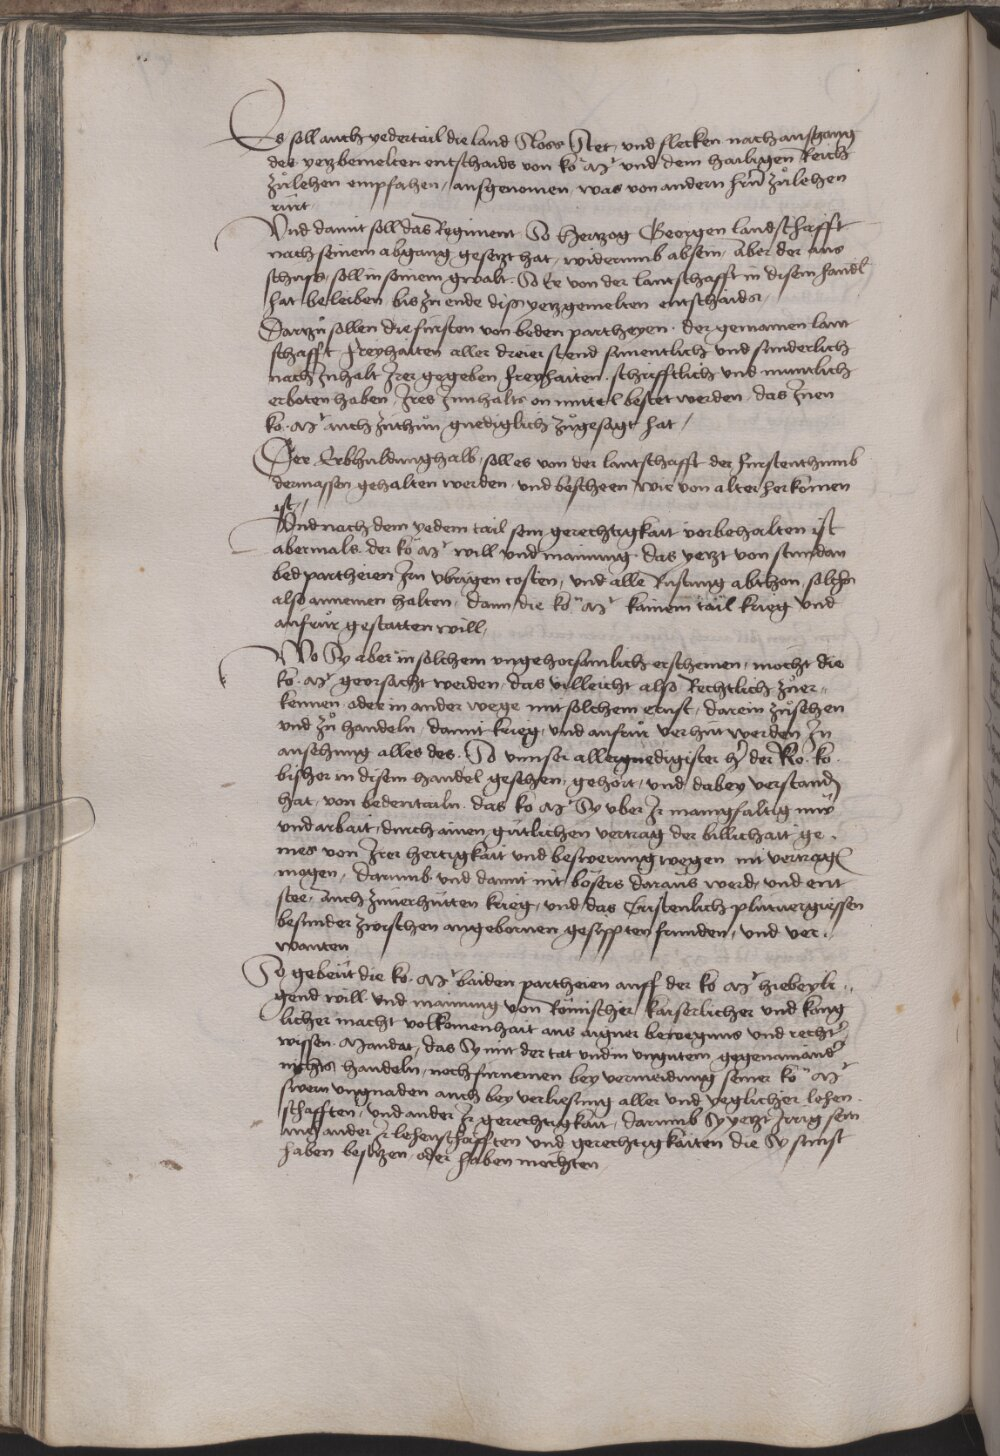 Es soll auch yedertail die land Sloss Stet, und flecken nach ausgang
der yetzbemelten entschaids von ko Mt und dem hailigen Reich
zůlehen empfahen, ausgenomen, was von andern hrn zůlehen
rürt.
Und damit soll das Regiment So Hertzog Georgen landschafft
nach seinem abgang gesetzt hat, widerumb absein, Aber der aus
schuss, soll in seinem gwalt. So Er von der lantschafft in disem handl
hat beleiben, bis zu ende diss yetzgemelten entschaids,
Dartzů sollen die fürsten von beden partheyen. der gemainen lant
schafft freyhaiten aller dreier stend samentlich und sunderlich
nach Inhalt Irer gegeben freyhaiten, schrifftlich und muntlich
erboten haben, Ires Innhalts on mittel bestet werden, das Inen
ko. Mt auch zuthůn gnediglich zůgesagt hat,
Der Erbhuldung halb, soll es von der lantschafft der furstenthumb
dermassen gehalten werden, und bescheen, wie von alter herkomen
ist,
Und nach dem yedem tail sein gerechtigkait vorbehalten ist
abermals. der ko Mt will und mainung das yetzt von stundan
bed partheien Irn ubrigen costen, und alle Rustung abthon, solchn
also annemen halten, dann die ko Mt kainem tail krieg und
aufrůr gestatten will,
Wo Sy aber in solchem ungehorsamlich erscheinen, mocht die
ko. Mt georsacht werden, das villeicht also Rechtlich zůer-
kennen, oder in ander wege mit solchem ernst, darein zůsehen
und zů handeln, damit krieg, und aufrůr verhut werden In
ansehung alles des. So unnser allergnedigister hr der Ro. ko.
bisher in disem handel gesehen, gehört, und dabey verstanden
hat, von bedentailn. das ko Mt Sy uber Ir manigfaltig müe
und arbait, durch ainen gütlichen vertrag der billichait ge-
mes von Irer hertigkait und beswerung wegen nit vertragen
mogen, Darumb und damit nit bösers daraus werd, und ent
stee, auch zuuerhütten krieg, und das Cristenlich plutuergiessen
besunder zwischen angebornen gesippten frunden, und ver-
wanten
So gebeut die ko. Mt baiden partheien auff der ko Mt hiebeyli-
gend will und mainung von Römischer kaiserlicher und küng
licher macht volkomenhait aus aigner bewegnus und rechter
wissen. Mandat, das Sy mit der tat und in ungutem gegenainander
nichts handeln, noch furnemen bey vermeidung seiner ko Mt
swern ungnaden auch bey verliesung aller und yeglicher lehen
schafften, und ander Ir gerechtigkait, darumb Sy yetzt Irrig sein
und ander Ir lehenschafften und gerechtigkaiten die Sy sunst
haben besitzen, oder haben mochten,